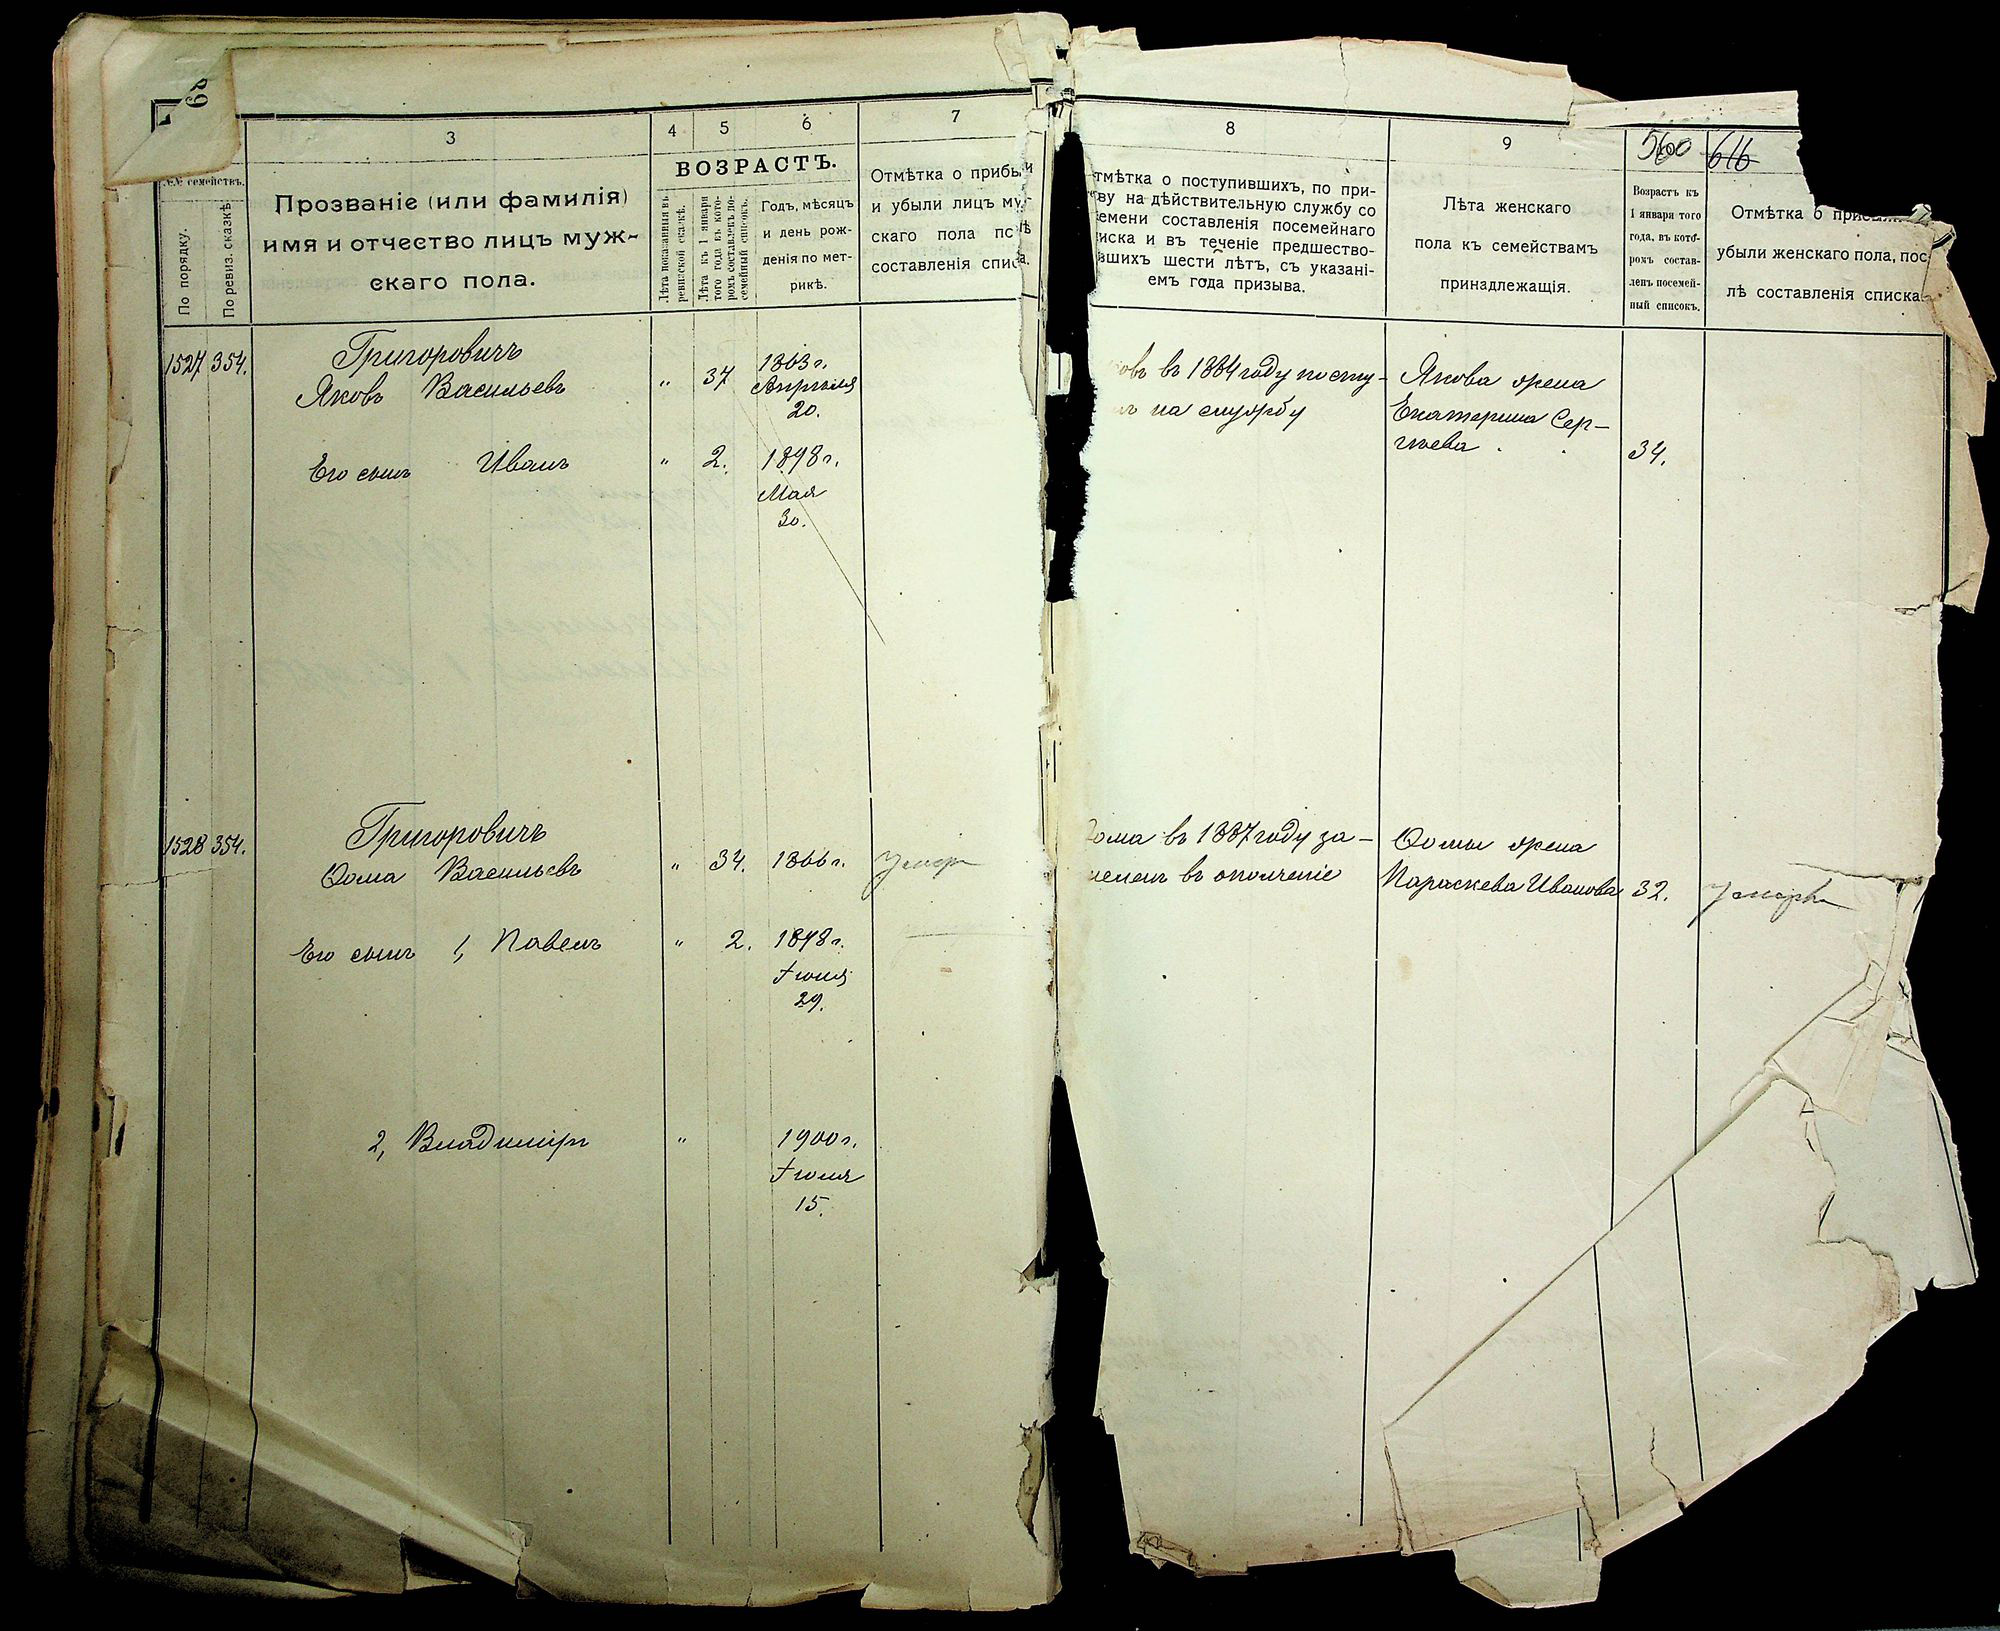 68
3
4
5
6
7
8
9
560
616
№№ семействъ.
По порядку.
По ревиз. сказкѣ.
Прозваніе (или фамилія)
имя и отчество лицъ муж-
скаго пола.
ВОЗРАСТЪ.
Лѣта показанныя въ
ревизской сказкѣ.
Лѣта къ 1 января
того года къ кото-
ромъ составленъ по-
семейный списокъ.
Годъ, мѣсяцъ
и день рож-
денія по мет-
рикѣ.
Отмѣтка о прибы и
и убыли лицъ му
скаго пола
составленія спис а.
тмѣтка о поступившихъ, по при-
ву на дѣйствительную службу со
емени составленія посемейнаго
иска и въ теченіе предшество-
вшихъ шести лѣтъ, съ указані-
емъ года призыва.
Лѣта женскаго
пола къ семействамъ
принадлежащія.
Возрастъ къ
1 января того
года, въ кото-
ромъ состав-
ленъ посемей-
ный списокъ.
Отмѣтка о при
убыли женскаго пола, пос
лѣ составленія списка
1527 354.
Григоровичъ
Яковъ Васильевъ
" 37
1863 г.
Апрѣля
20.
ковъ въ 1884 году посту-
илъ на службу
Якова жена
Екатерина Сер-
гѣева. 34.
Его сынъ Иванъ
" 2. 1898 г.
Мая
30.
1528 354.
Григоровичъ
Ѳома Васильевъ
" 34. 1866 г. Умеръ
Ѳома въ 1887 году за-
численъ въ ополченіе
Ѳомы жена
Параскева Иванова 32. Умерла
Его сынъ 1, Павелъ
" 2. 1898 г.
Іюня
29.
2, Владиміръ
" 1900 г.
Іюля
15.